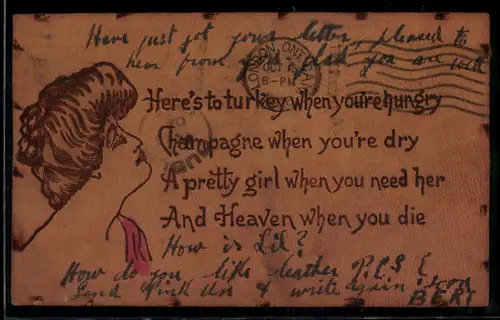 Have just got your letter, pleased to
hear from you glad you are well
LONDON, ONT
OCT
8-PM
Here's to turkey when you're hungry
Champagne when you're dry
A pretty girl when you need her
And Heaven when you die
How is Lil?
How do you like leather P.C.S?
Send & write again soon
BERT